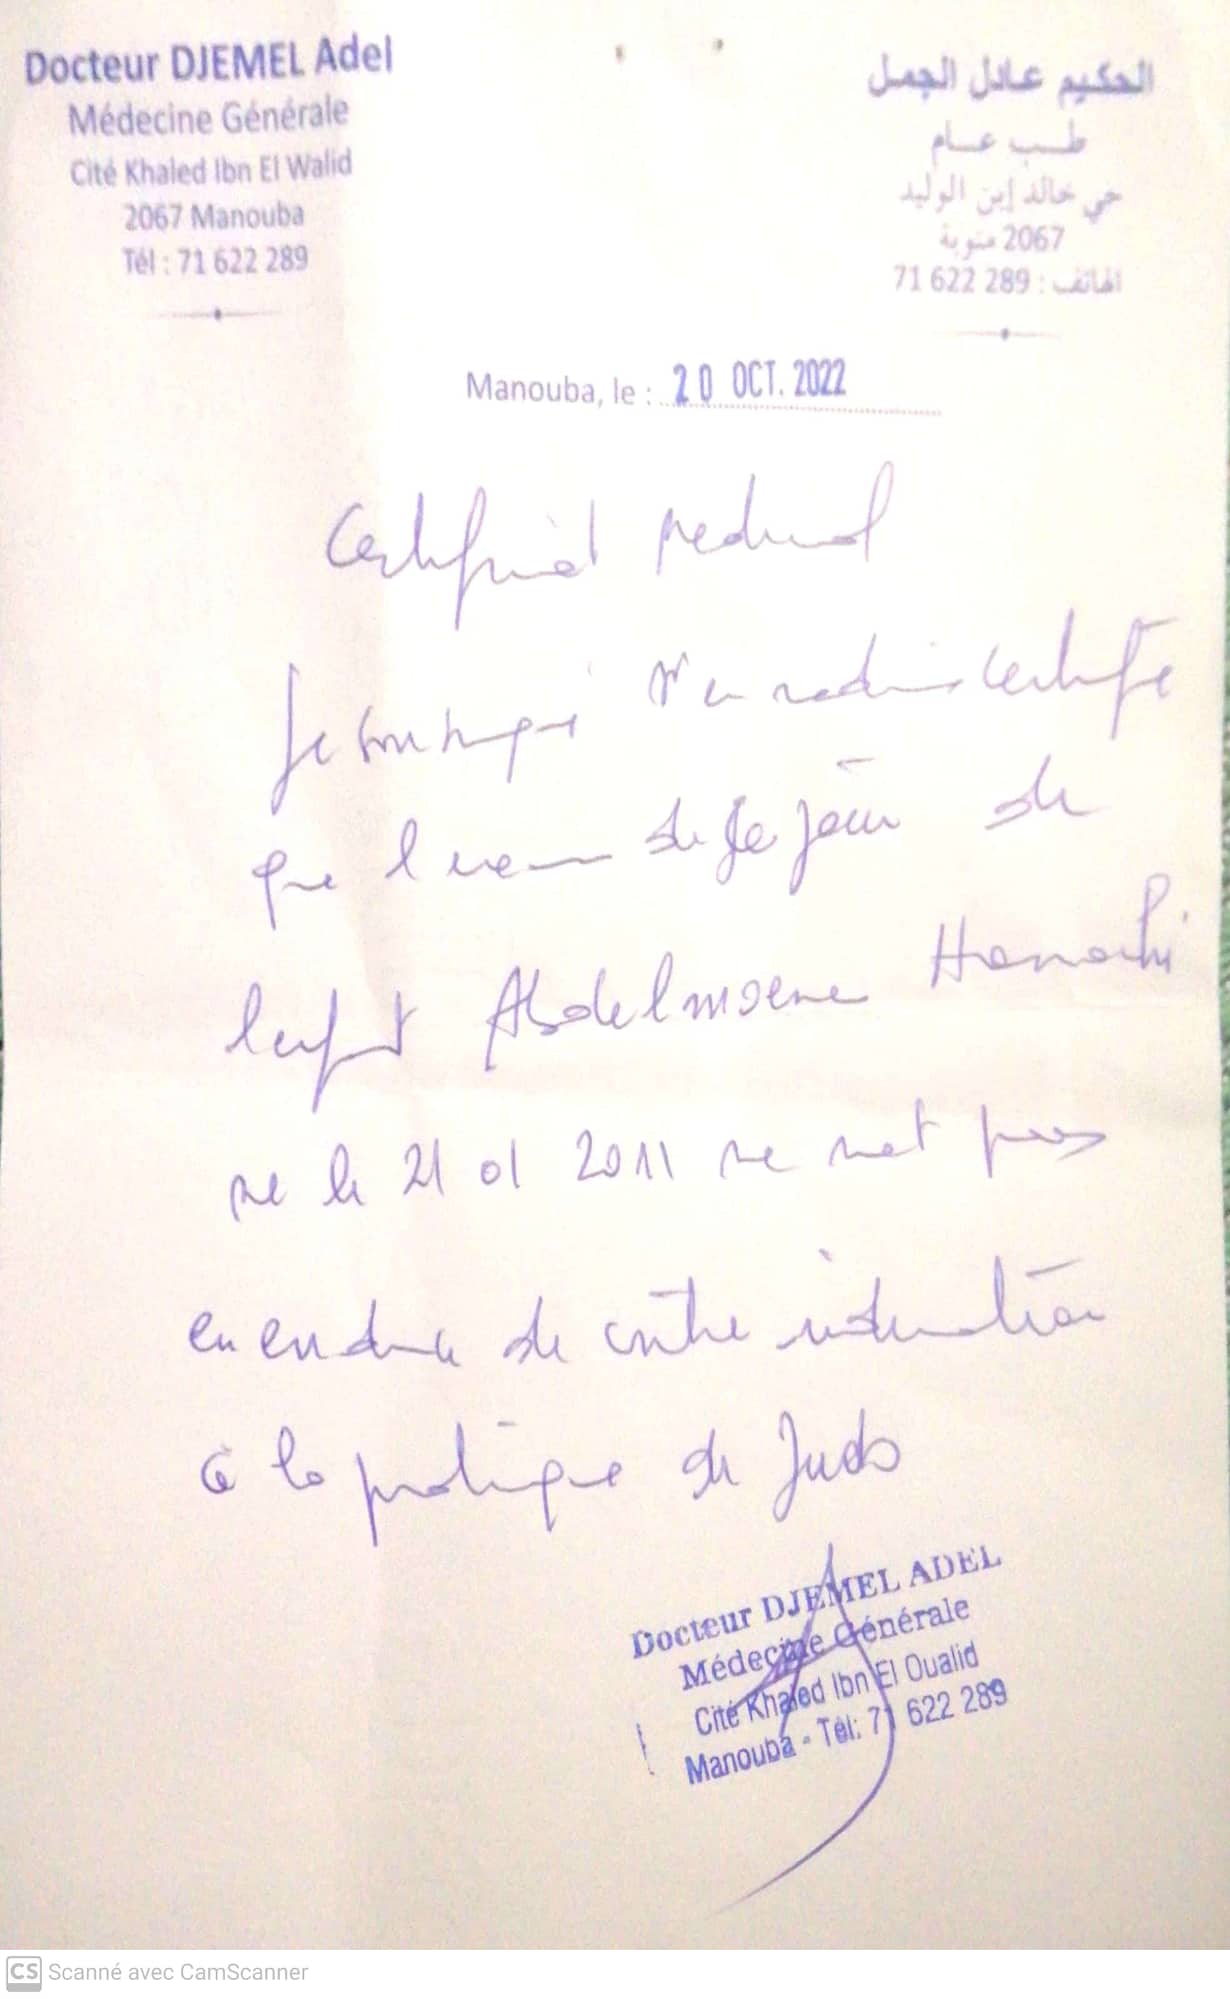 Docteur DJEMEL Adel
Médecine Générale
Cité Khaled Ibn El Walid
2067 Manouba
Tél : 71 622 289
الحكيم عادل الجمل
طب عام
حي خالد إبن الوليد
2067 منوبة
الهاتف : 71 622 289
Manouba, le : 20 OCT. 2022
Certificat medical
Je soussigné Dr en medecine certifie
que l'examen de ce jour de
l'enfant Abdelmoene Hanachi
ne le 21 01 2011 ne met pas
en evidence de contre indication
à la pratique de Judo
Docteur DJEMEL ADEL
Médecine Générale
Cité Khaled Ibn El Oualid
Manouba - Tél: 71 622 289
CS Scanné avec CamScanner